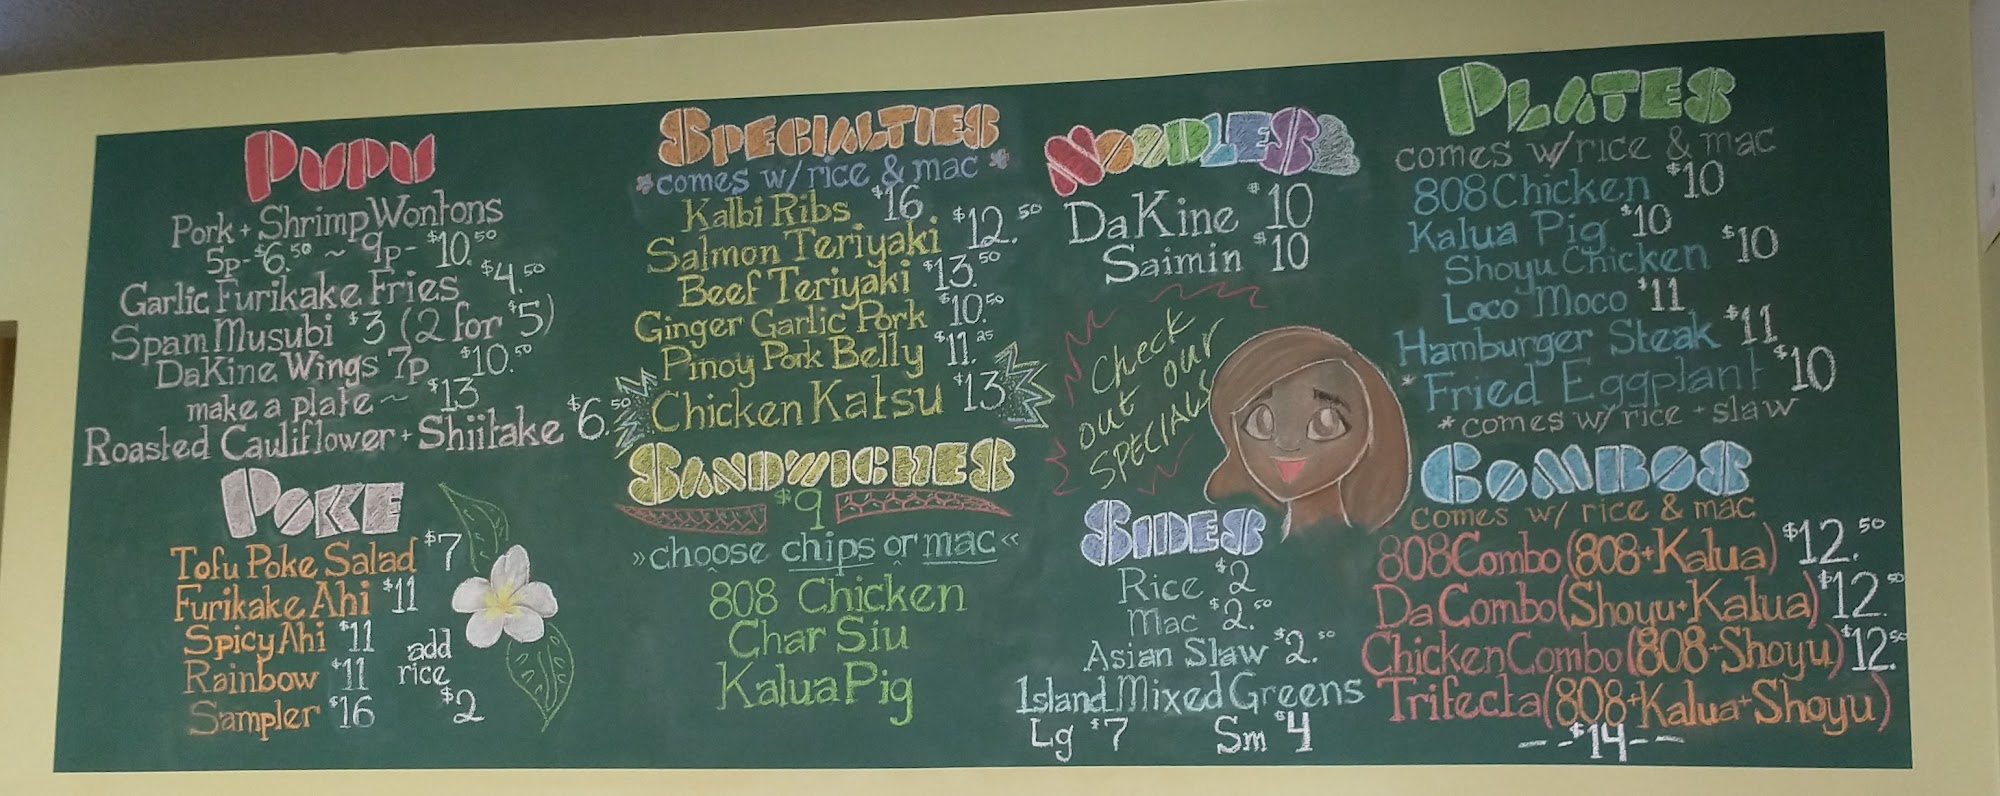 PUPU
Pork + Shrimp Wontons
5p- $6.50 ~ 9p- $10.50
Garlic Furikake Fries $4.50
Spam Musubi $3 (2 for $5)
DaKine Wings 7p $10.50
make a plate ~ $13
Roasted Cauliflower + Shiitake $6.50
POKE
Tofu Poke Salad $7
Furikake Ahi $11
Spicy Ahi $11
Rainbow $11
Sampler $16
add
rice
$2
SPECIALTIES
*comes w/ rice & mac*
Kalbi Ribs $16
Salmon Teriyaki $12.50
Beef Teriyaki $13.50
Ginger Garlic Pork $10.50
Pinoy Pork Belly $11.25
Chicken Katsu $13
SANDWICHES
$9
»choose chips or mac«
808 Chicken
Char Siu
Kalua Pig
NOODLES
DaKine $10
Saimin $10
Check
out our
SPECIALS
SIDES
Rice $2
Mac $2.50
Asian Slaw $2.50
Island Mixed Greens
Lg $7 Sm $4
PLATES
comes w/rice & mac
808 Chicken $10
Kalua Pig $10
Shoyu Chicken $10
Loco Moco $11
Hamburger Steak $11
*Fried Eggplant $10
*comes w/ rice + slaw
COMBOS
comes w/ rice & mac
808 Combo (808+Kalua) $12.50
Da Combo (Shoyu+Kalua) $12.50
Chicken Combo (808+Shoyu) $12.50
Trifecta (808+Kalua+Shoyu)
---$14---